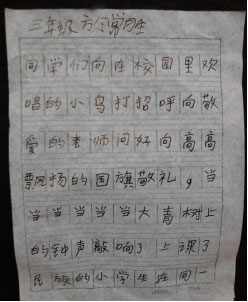 三年级 方
同学们向在校园里欢
唱的小鸟打招呼向敬
爱的老师问好向高高
飘扬的国旗敬礼，当
当当当当当大青树上
的钟声敲响了上课了
民族的小学生在同一